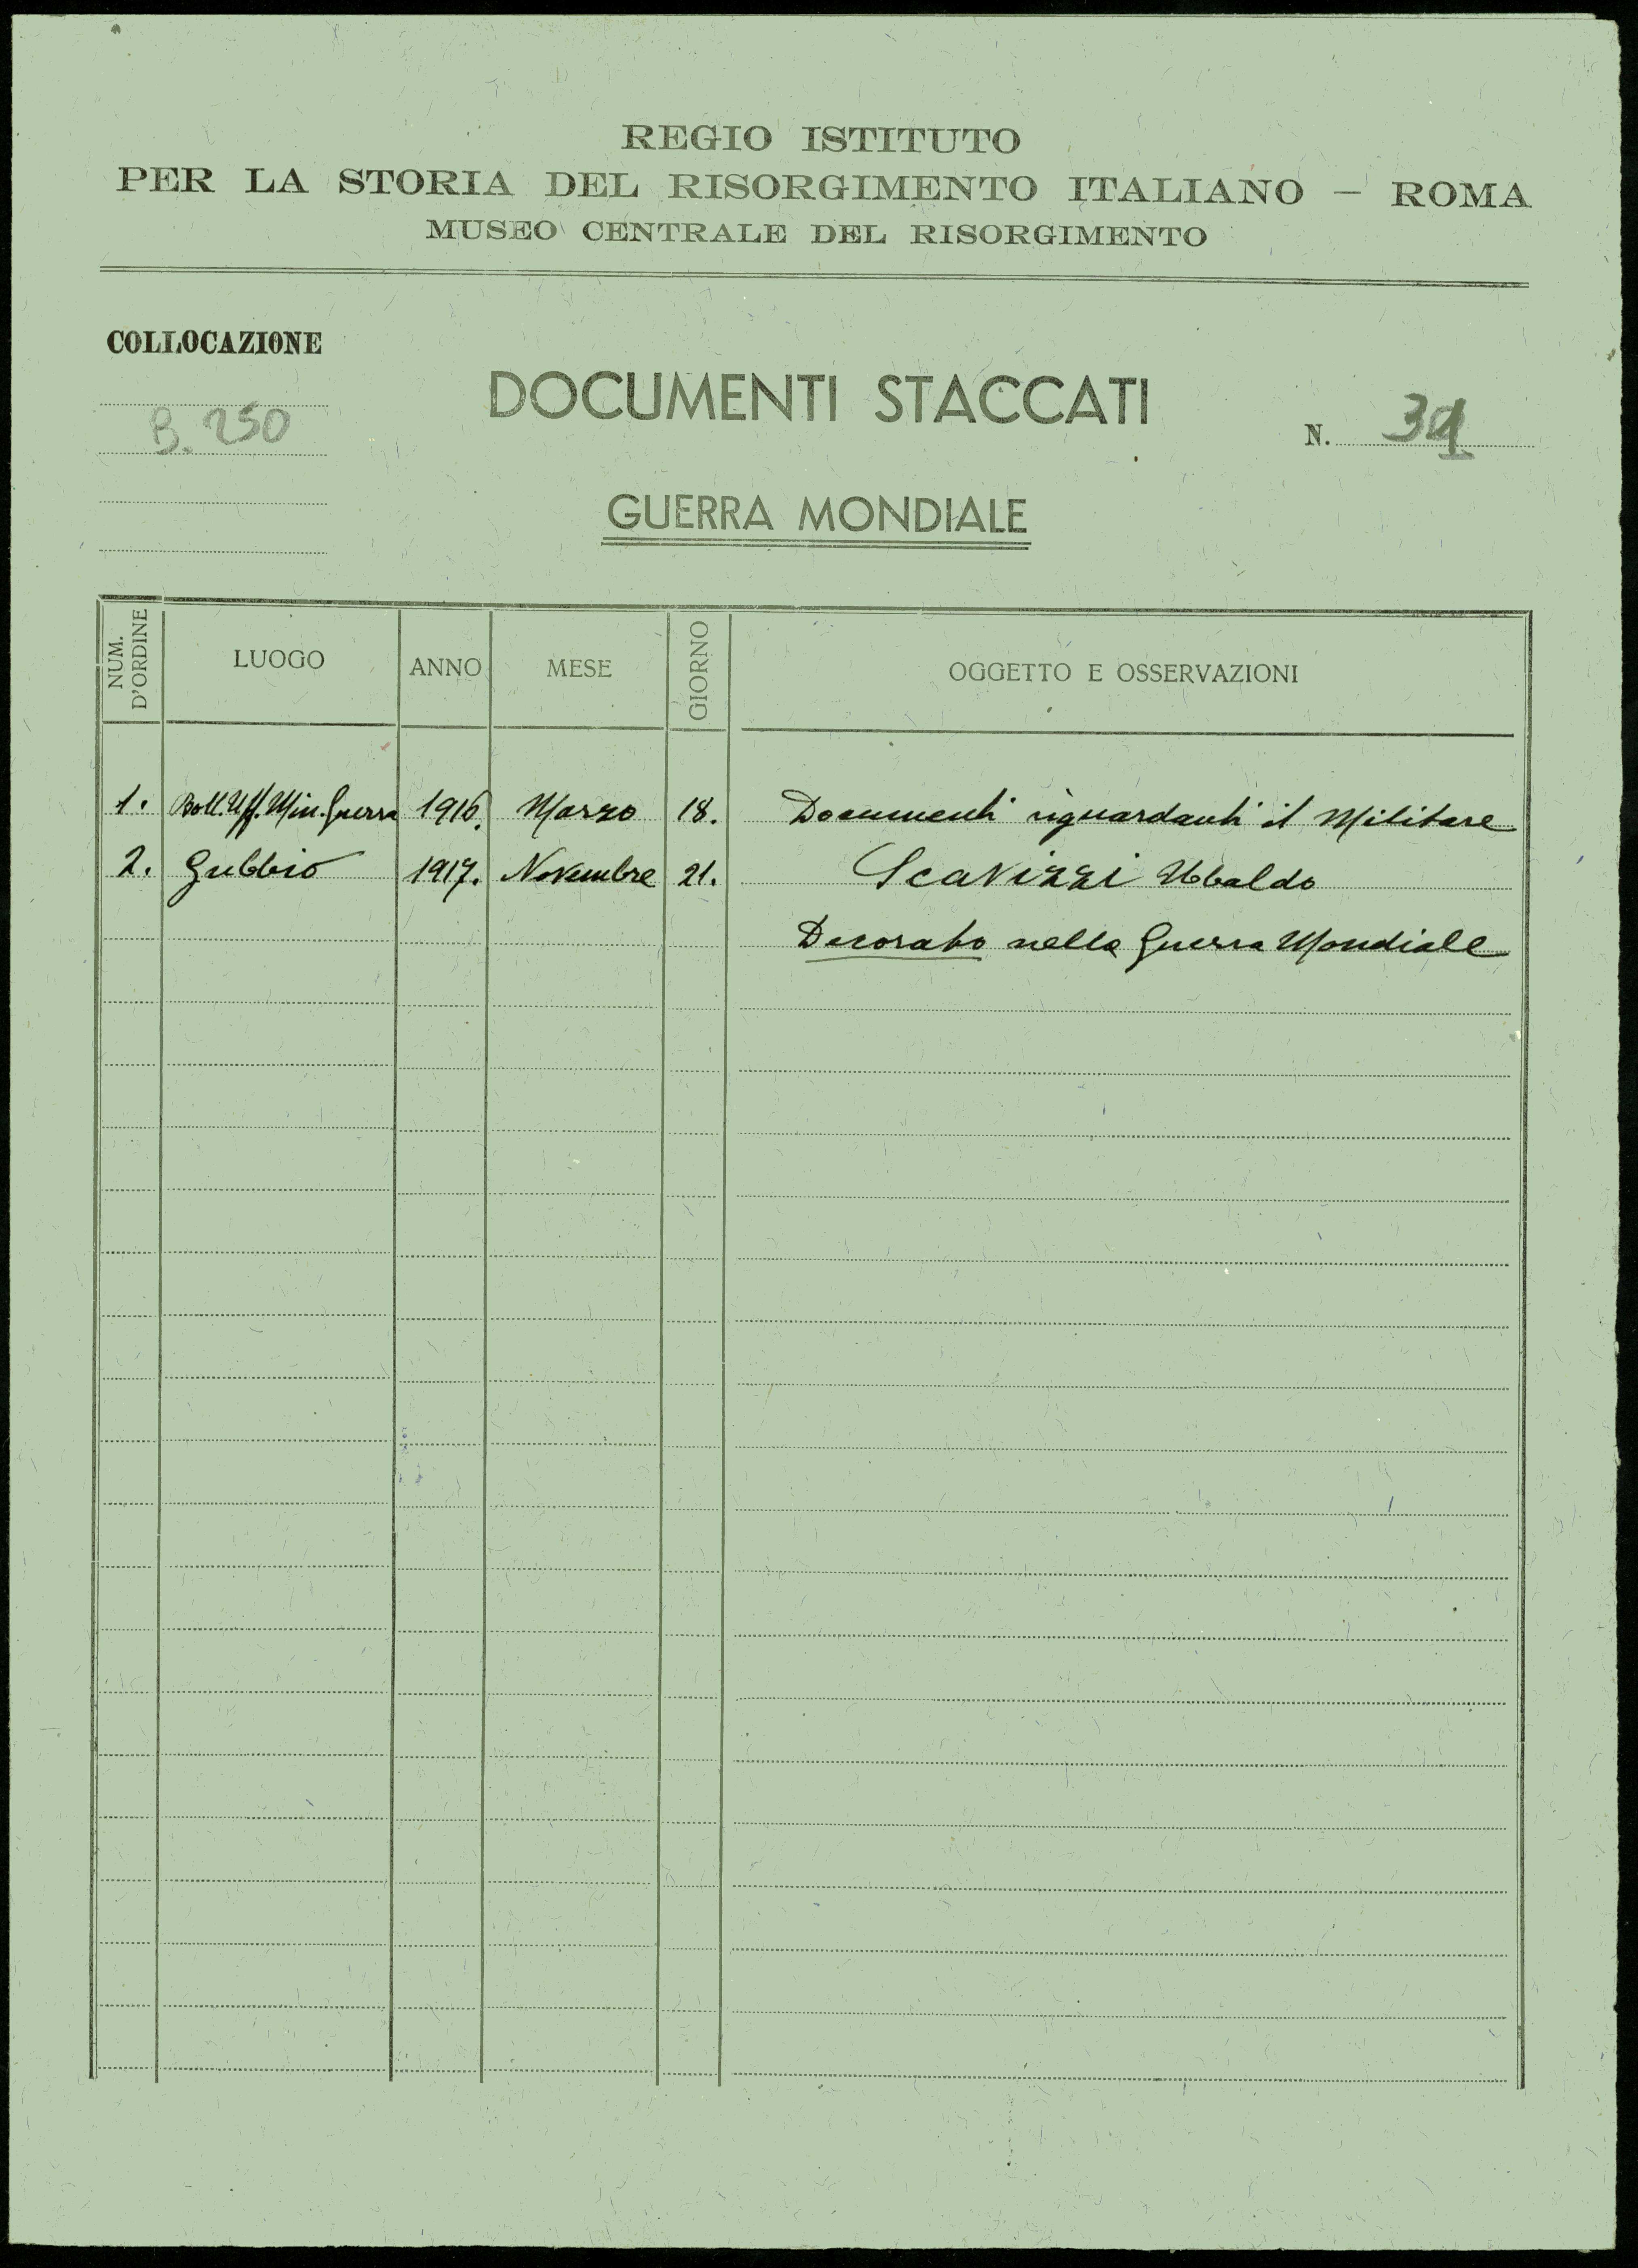 REGIO ISTITUTO
PER LA STORIA DEL RISORGIMENTO ITALIANO – ROMA
MUSEO CENTRALE DEL RISORGIMENTO
COLLOCAZIONE
B. 250
DOCUMENTI STACCATI
N.
GUERRA MONDIALE
NUM. D'ORDINE LUOGO ANNO MESE GIORNO OGGETTO E OSSERVAZIONI
1. Boll. Uff. Min. Guerra 1916. Marzo 18. Documenti riguardanti il Militare
2. Gubbio 1917. Novembre 21. Scavizzi Ubaldo
Decorato nella Guerra Mondiale